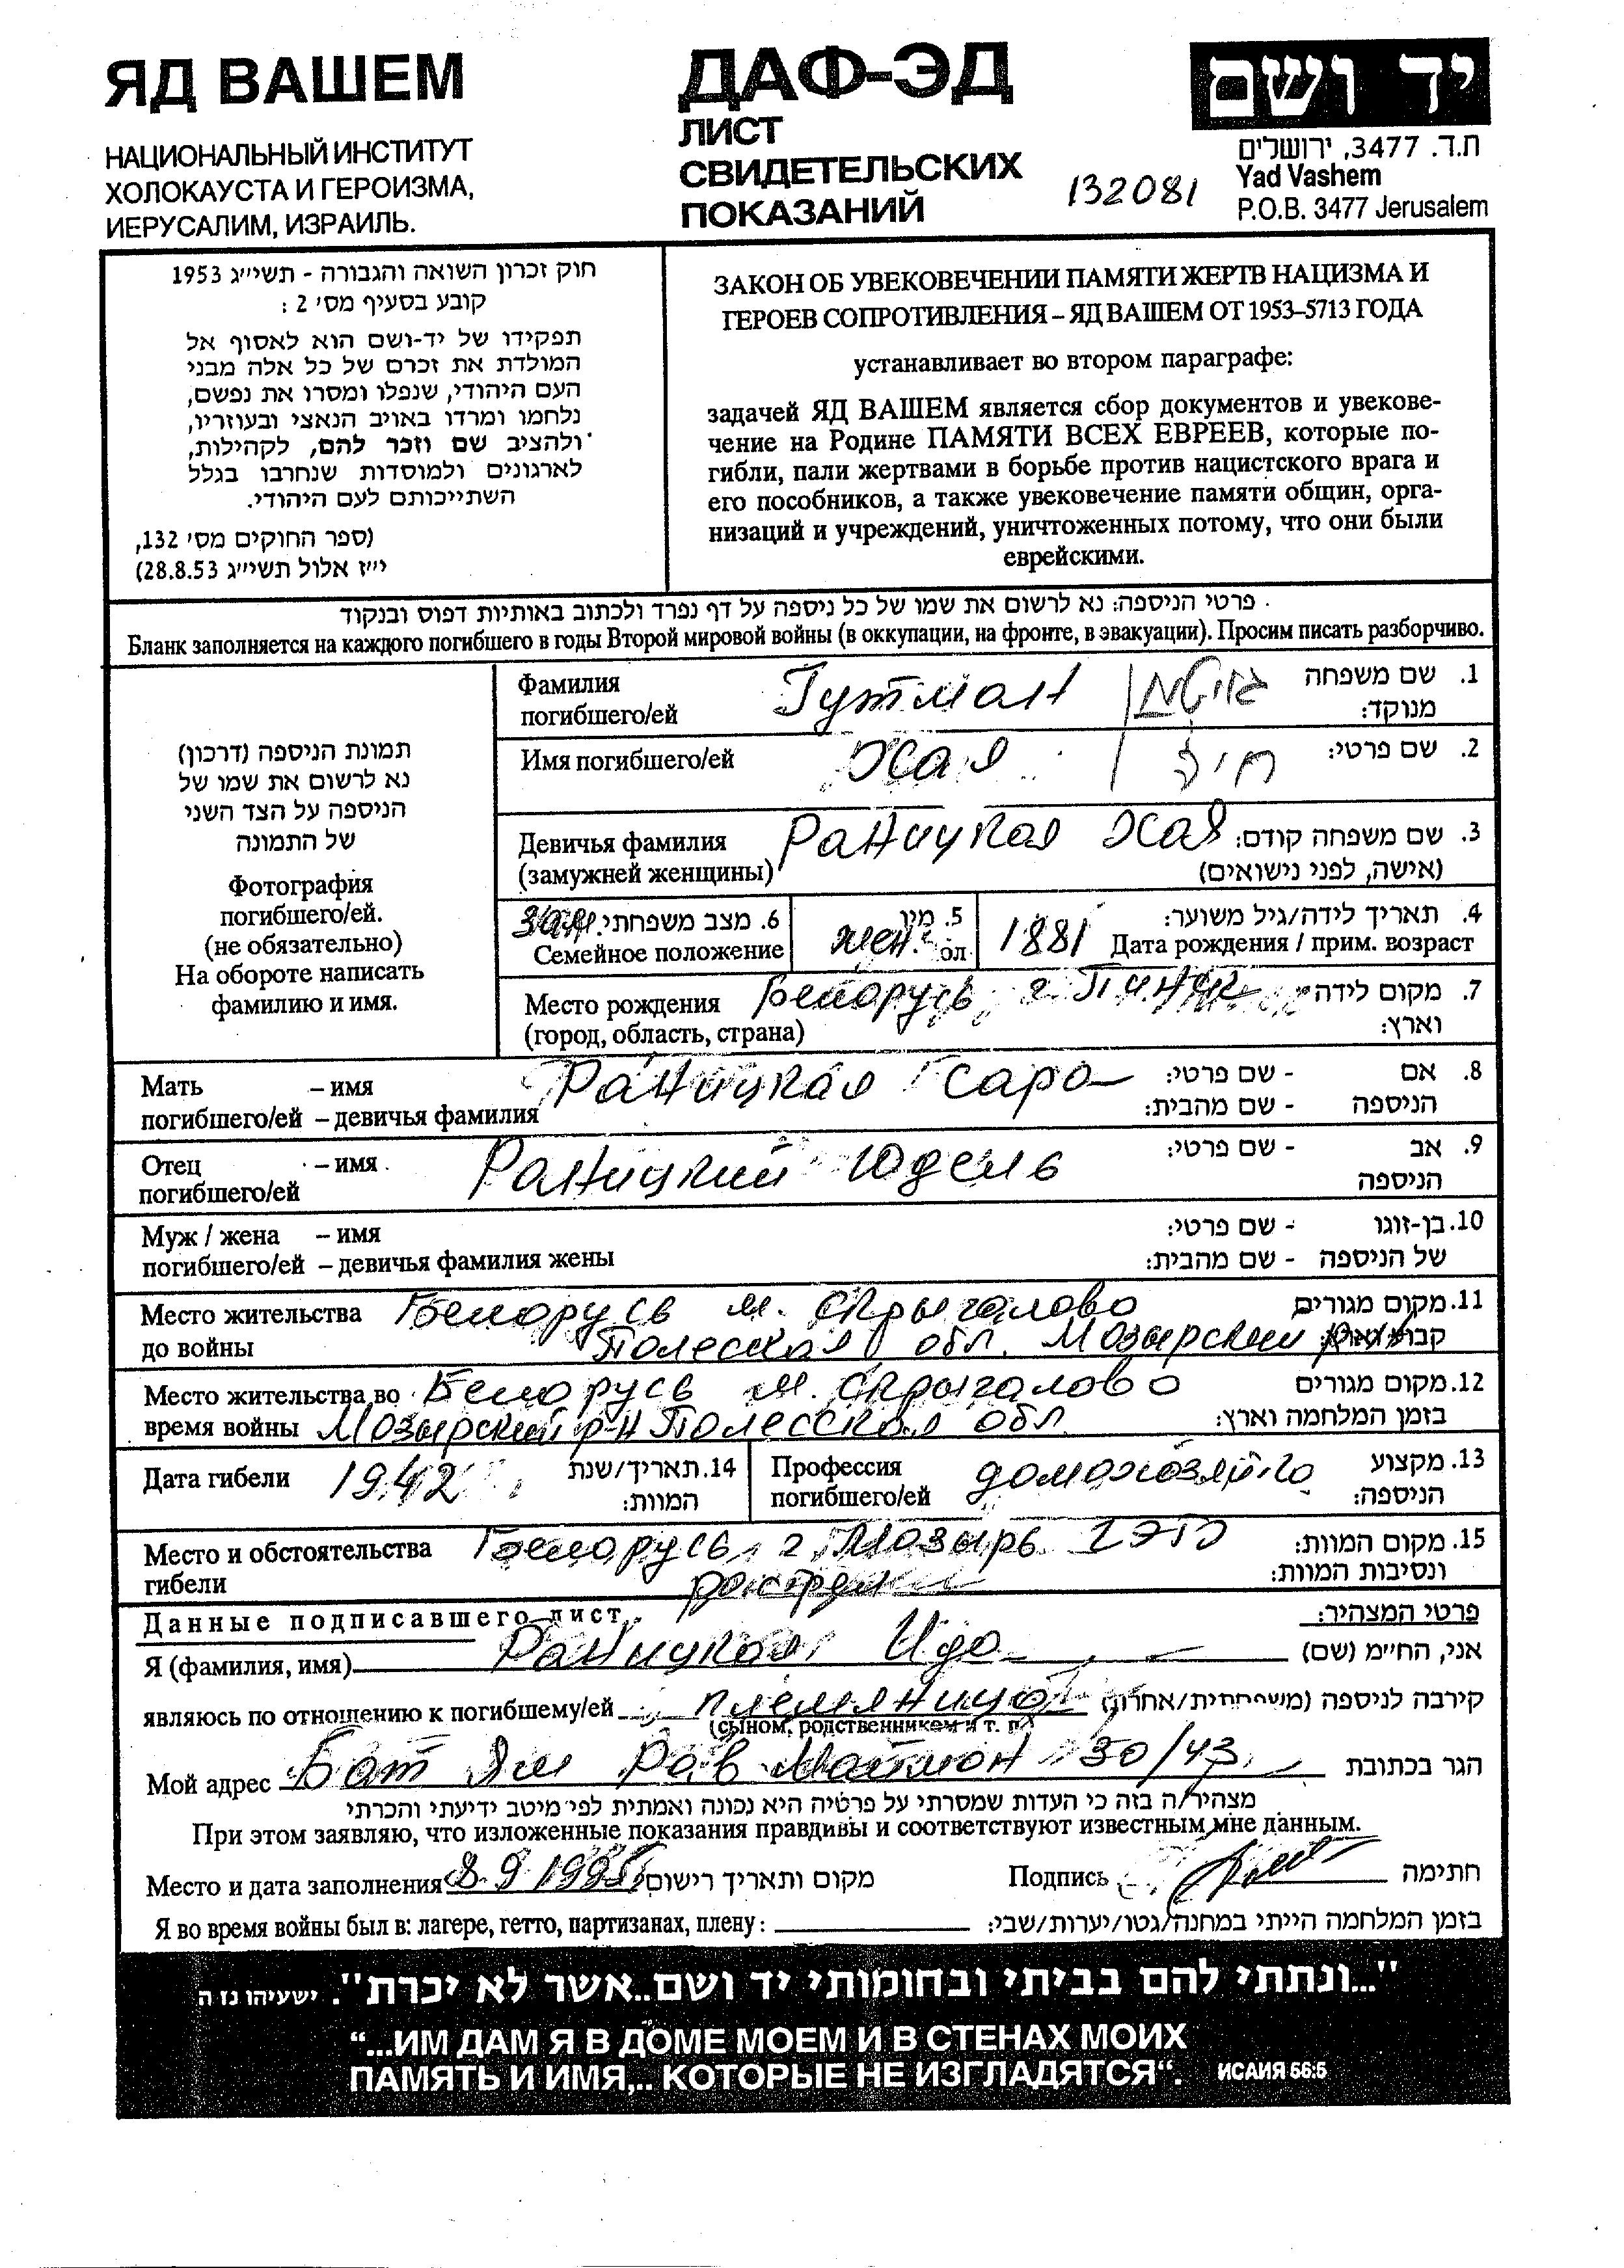 ЯД ВАШЕМ
НАЦИОНАЛЬНЫЙ ИНСТИТУТ
ХОЛОКАУСТА И ГЕРОИЗМА,
ИЕРУСАЛИМ, ИЗРАИЛЬ.
ДАФ-ЭД
ЛИСТ
СВИДЕТЕЛЬСКИХ
ПОКАЗАНИЙ
132081
יד ושם
ת.ד. 3477, ירושלים
Yad Vashem
P.O.B. 3477 Jerusalem
חוק זכרון השואה והגבורה - תשי״ג 1953
קובע בסעיף מס׳ 2 :
תפקידו של יד-ושם הוא לאסוף אל
המולדת את זכרם של כל אלה מבני
העם היהודי, שנפלו ומסרו את נפשם,
נלחמו ומרדו באויב הנאצי ובעוזריו,
ולהציב שם וזכר להם, לקהילות,
לארגונים ולמוסדות שנחרבו בגלל
השתייכותם לעם היהודי.
(ספר החוקים מס׳ 132,
י״ז אלול תשי״ג 28.8.53)
ЗАКОН ОБ УВЕКОВЕЧЕНИИ ПАМЯТИ ЖЕРТВ НАЦИЗМА И
ГЕРОЕВ СОПРОТИВЛЕНИЯ – ЯД ВАШЕМ ОТ 1953–5713 ГОДА
устанавливает во втором параграфе:
задачей ЯД ВАШЕМ является сбор документов и увекове-
чение на Родине ПАМЯТИ ВСЕХ ЕВРЕЕВ, которые по-
гибли, пали жертвами в борьбе против нацистского врага и
его пособников, а также увековечение памяти общин, орга-
низаций и учреждений, уничтоженных потому, что они были
еврейскими.
פרטי הניספה: נא לרשום את שמו של כל ניספה על דף נפרד ולכתוב באותיות דפוס ובנקוד
Бланк заполняется на каждого погибшего в годы Второй мировой войны (в оккупации, на фронте, в эвакуации). Просим писать разборчиво.
תמונת הניספה (דרכון)
נא לרשום את שמו של
הניספה על הצד השני
של התמונה
Фотография
погибшего/ей.
(не обязательно)
На обороте написать
фамилию и имя.
Фамилия Гутман גוטמן 1. שם משפחה
погибшего/ей מנוקד:
Имя погибшего/ей Хая חיה 2. שם פרטי:
Девичья фамилия Раницкая Хая 3. שם משפחה קודם:
(замужней женщины) (אישה, לפני נישואים)
зам. 6. מצב משפחתי 5. מין 4. תאריך לידה/גיל משוער:
Семейное положение жен. ол 1881 Дата рождения / прим. возраст
Место рождения Белорусь г. Пинск 7. מקום לידה
(город, область, страна) וארץ:
Мать – имя Раницкая Сара 8. אם - שם פרטי:
погибшего/ей – девичья фамилия הניספה - שם מהבית:
Отец – имя Раницкий Юдель 9. אב - שם פרטי:
погибшего/ей הניספה
Муж / жена – имя 10. בן-זוגו - שם פרטי:
погибшего/ей – девичья фамилия жены של הניספה - שם מהבית:
Место жительства Белорусь м. Скрыгалово 11. מקום מגורים
до войны Полесская обл. Мозырский
Место жительства во Белорусь м. Скрыгалово 12. מקום מגורים
время войны Мозырский р-н Полесская обл. בזמן המלחמה וארץ:
Дата гибели 1942 14. תאריך/שנת
המוות:
Профессия домохозяйка 13. מקצוע
погибшего/ей הניספה:
Место и обстоятельства Белорусь г. Мозырь 15. מקום המוות:
гибели расстрел ונסיבות המוות:
Данные подписавшего лист פרטי המצהיר:
Я (фамилия, имя) Раницкая Ида אני, החי״מ (שם)
являюсь по отношению к погибшему/ей племянницей קירבה לניספה (משפחתית/אחרת)
(сыном, родственником и т. п.)
Мой адрес Бат Ям Рав Маймон 30/43 הגר בכתובת
מצהיר/ה בזה כי העדות שמסרתי על פרטיה היא נכונה ואמתית לפי מיטב ידיעתי והכרתי
При этом заявляю, что изложенные показания правдивы и соответствуют известным мне данным.
Место и дата заполнения 8.9.1995 מקום ותאריך רישום Подпись חתימה
Я во время войны был в: лагере, гетто, партизанах, плену: בזמן המלחמה הייתי במחנה/גטו/יערות/שבי:
"...ונתתי להם בביתי ובחומותי יד ושם..אשר לא יכרת". ישעיהו נז ה
“...ИМ ДАМ Я В ДОМЕ МОЕМ И В СТЕНАХ МОИХ
ПАМЯТЬ И ИМЯ,.. КОТОРЫЕ НЕ ИЗГЛАДЯТСЯ“. ИСАИЯ 56:5